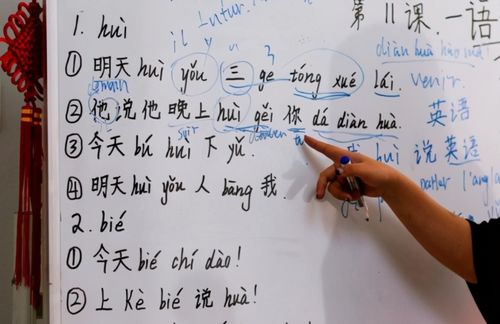 第11课. 一语
Intur.
1. huì
il y 3
diàn huà hào mǎ
① 明天 huì yǒu 三 ge tóng xué lái. venir.
demain
② 他说他晚上 huì gěi 你 dǎ diàn huà. 英语
soir
③ 今天 bú huì 下 yǔ. huì 说英语
④ 明天 huì yǒu 人 bāng 我.
2. bié
① 今天 bié chí dào!
② 上 Kè bié 说 huà!